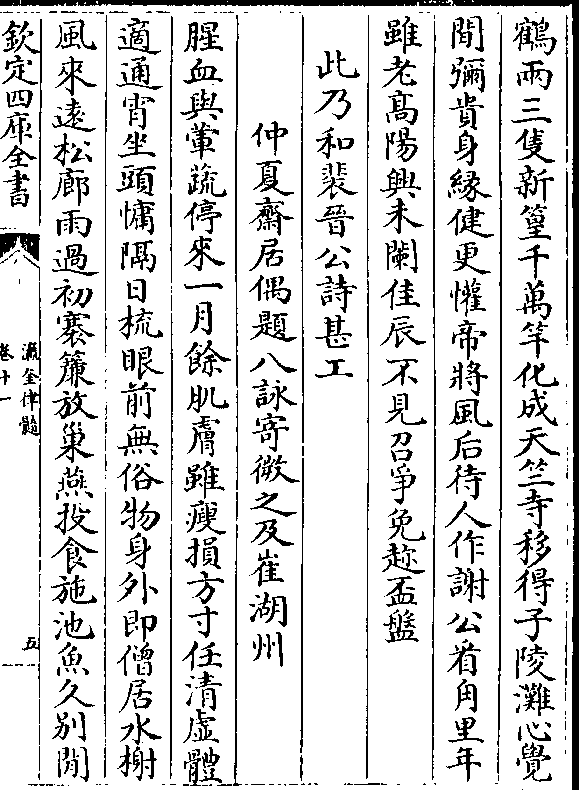 鶴兩三隻新篁千萬竿化成天竺寺移得子陵灘心覺
閒彌貴身縁健更懽帝將風后待人作謝公看甪里年
雖老髙陽興未闌佳辰不見召爭免趂盃盤
此乃和裴晉公詩甚工
仲夏齋居偶題八詠寄微之及崔湖州
腥血與葷蔬停來一月餘肌膚雖瘦損方寸任清虛體
適通宵坐頭慵隔日梳眼前無俗物身外即僧居水榭
風來遠松廊雨過初褰簾放巢燕投食施池魚久别閒
欽定四庫全書
瀛奎律髓
卷十一
五